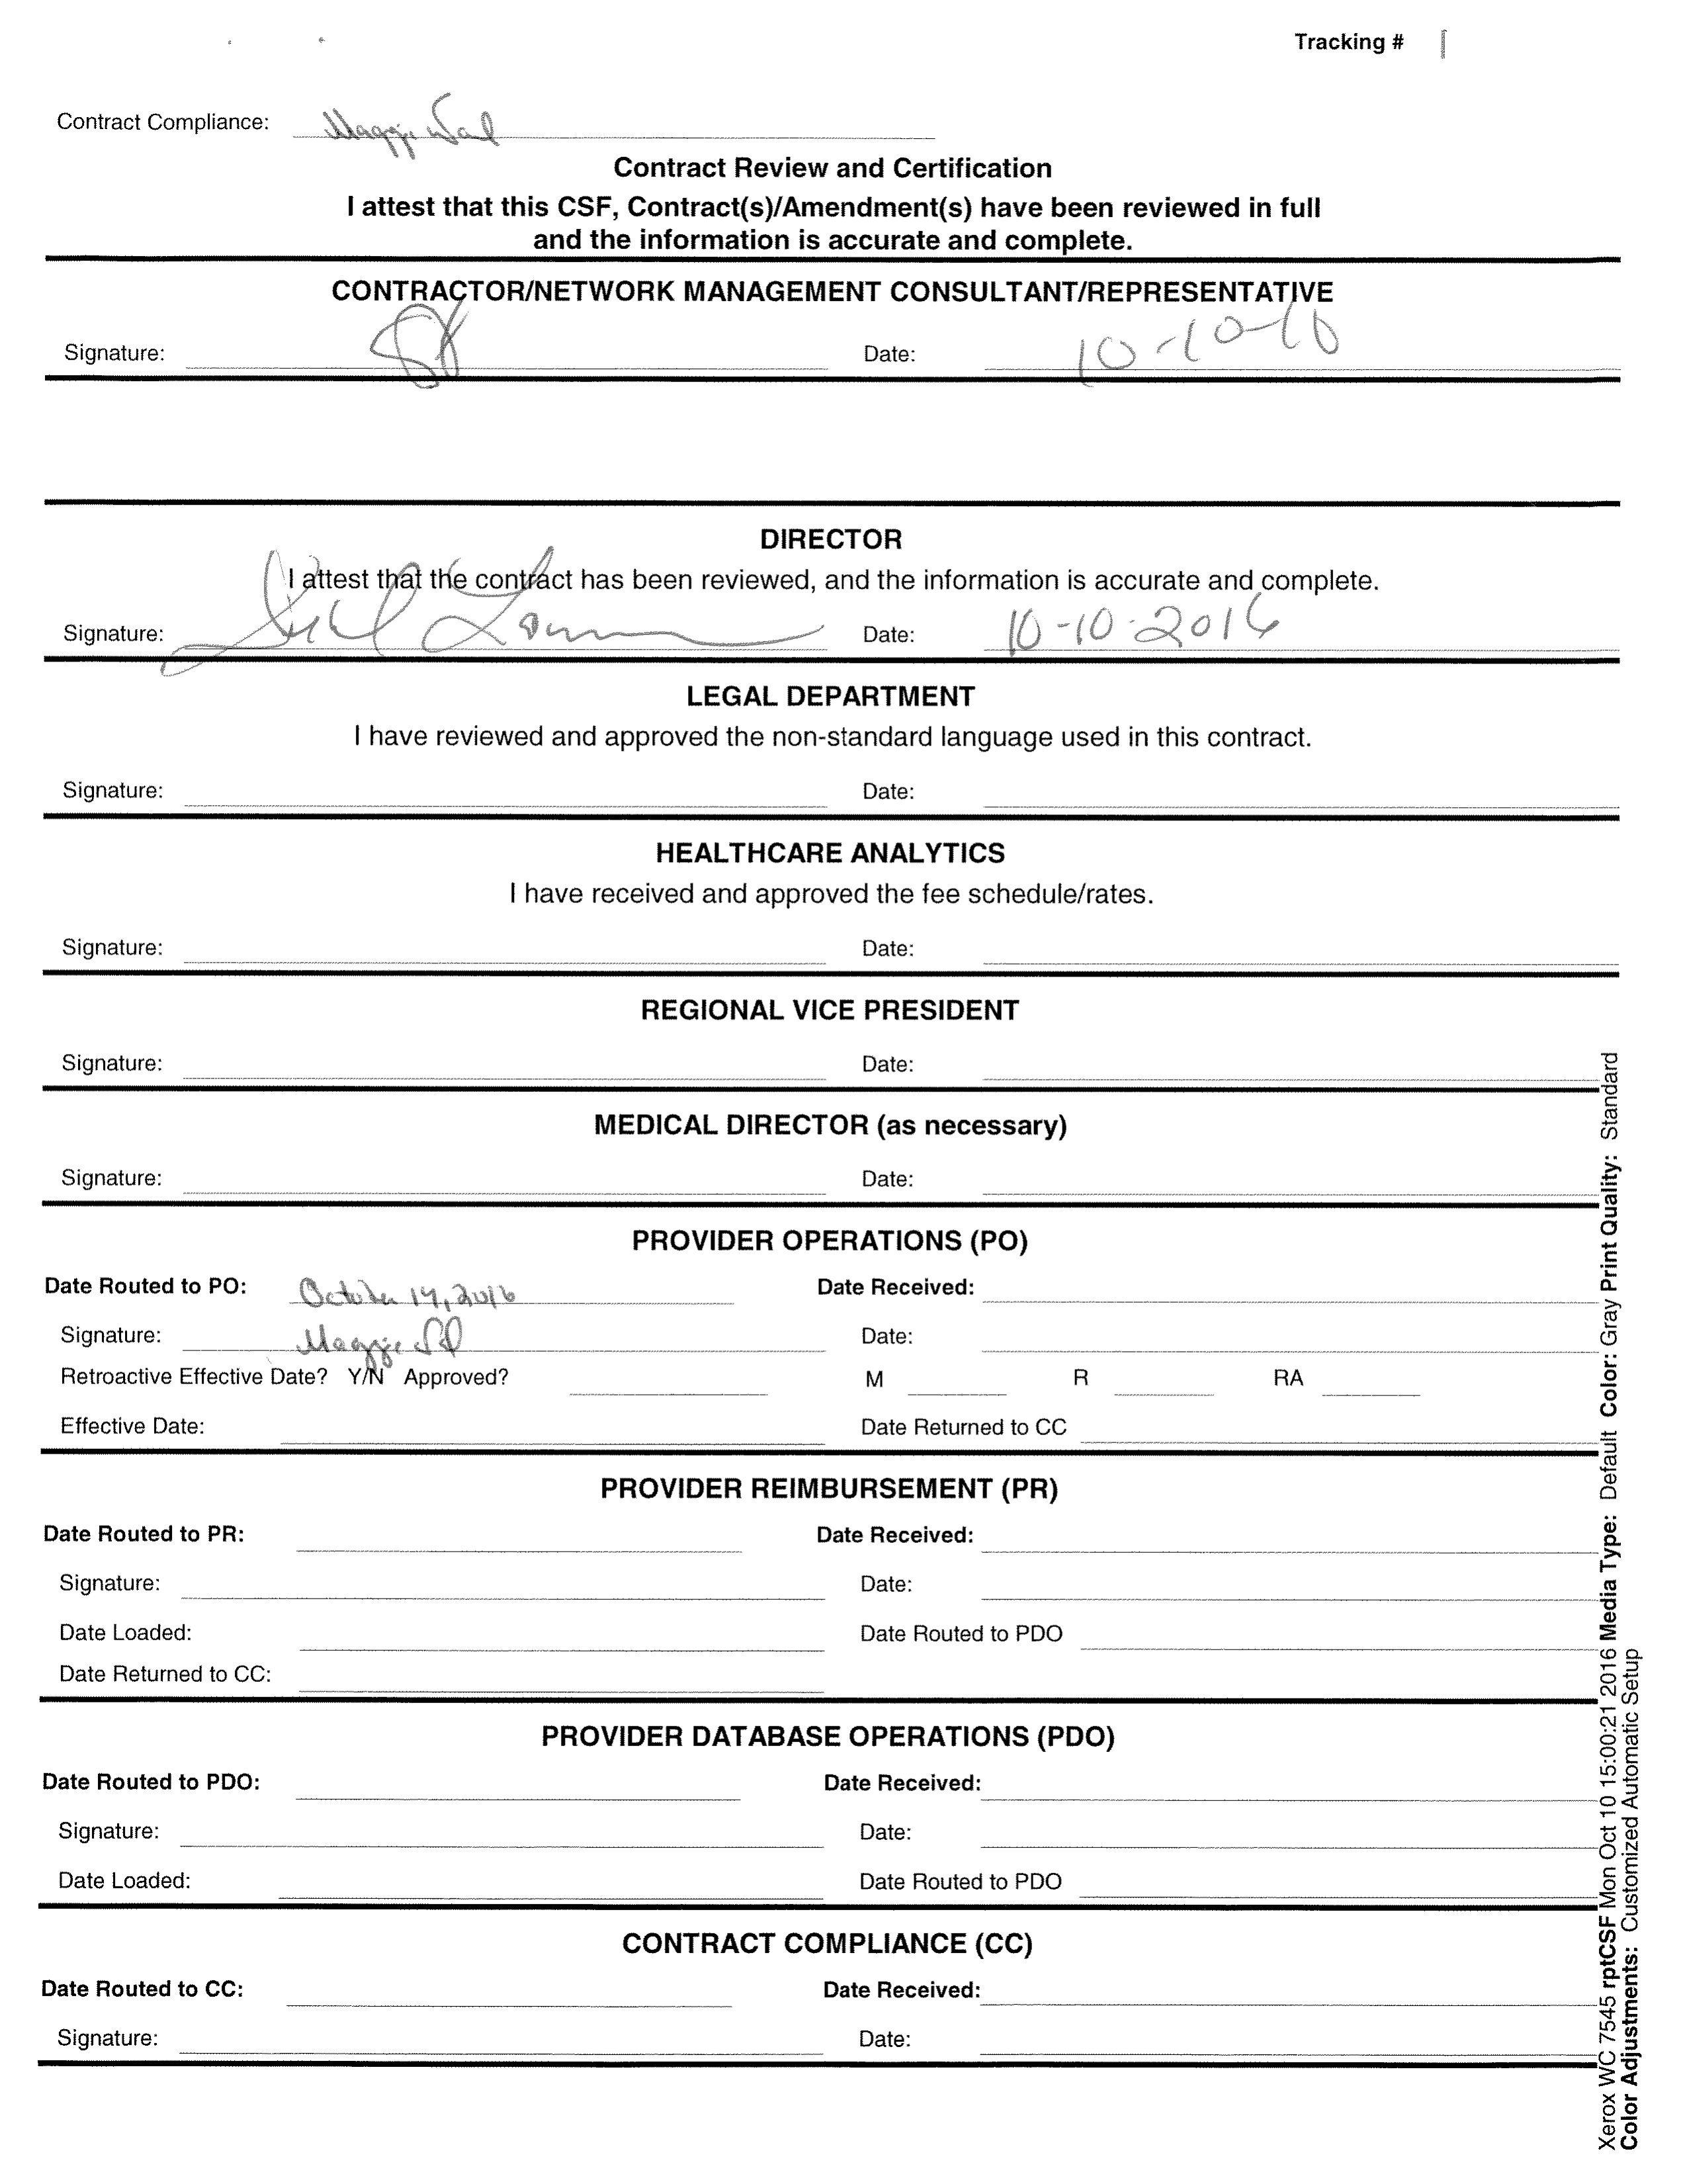 Tracking #
Contract Compliance: Maggie
Contract Review and Certification
I attest that this CSF, Contract(s)/Amendment(s) have been reviewed in full
and the information is accurate and complete.
CONTRACTOR/NETWORK MANAGEMENT CONSULTANT/REPRESENTATIVE
Signature: Date: 10-10-16
DIRECTOR
I attest that the contract has been reviewed, and the information is accurate and complete.
Signature: Date: 10-10-2016
LEGAL DEPARTMENT
I have reviewed and approved the non-standard language used in this contract.
Signature: Date:
HEALTHCARE ANALYTICS
I have received and approved the fee schedule/rates.
Signature: Date:
REGIONAL VICE PRESIDENT
Signature: Date:
MEDICAL DIRECTOR (as necessary)
Signature: Date:
PROVIDER OPERATIONS (PO)
Date Routed to PO: October 14, 2016 Date Received:
Signature: Maggie Date:
Retroactive Effective Date? Y/N Approved? M R RA
Effective Date: Date Returned to CC
PROVIDER REIMBURSEMENT (PR)
Date Routed to PR: Date Received:
Signature: Date:
Date Loaded: Date Routed to PDO
Date Returned to CC:
PROVIDER DATABASE OPERATIONS (PDO)
Date Routed to PDO: Date Received:
Signature: Date:
Date Loaded: Date Routed to PDO
CONTRACT COMPLIANCE (CC)
Date Routed to CC: Date Received:
Signature: Date:
Xerox WC 7545 rptCSF Mon Oct 10 15:00:21 2016 Media Type: Default Color: Gray Print Quality: Standard
Color Adjustments: Customized Automatic Setup